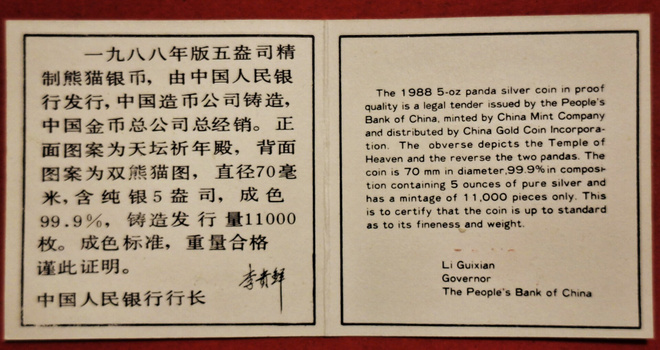 一九八八年版五盎司精
制熊猫银币，由中国人民银
行发行，中国造币公司铸造，
中国金币总公司总经销。正
面图案为天坛祈年殿，背面
图案为双熊猫图，直径70毫
米，含纯银5盎司，成色
99.9%，铸造发行量11000
枚。成色标准，重量合格
谨此证明。
李贵鲜
中国人民银行行长
The 1988 5-oz panda silver coin in proof
quality is a legal tender issued by the People's
Bank of China, minted by China Mint Company
and distributed by China Gold Coin Incorpora-
tion. The obverse depicts the Temple of
Heaven and the reverse the two pandas. The
coin is 70 mm in diameter,99.9% in composi-
tion containing 5 ounces of pure silver and
has a mintage of 11,000 pieces only. This
is to certify that the coin is up to standard
as to its fineness and weight.
Li Guixian
Governor
The People's Bank of China